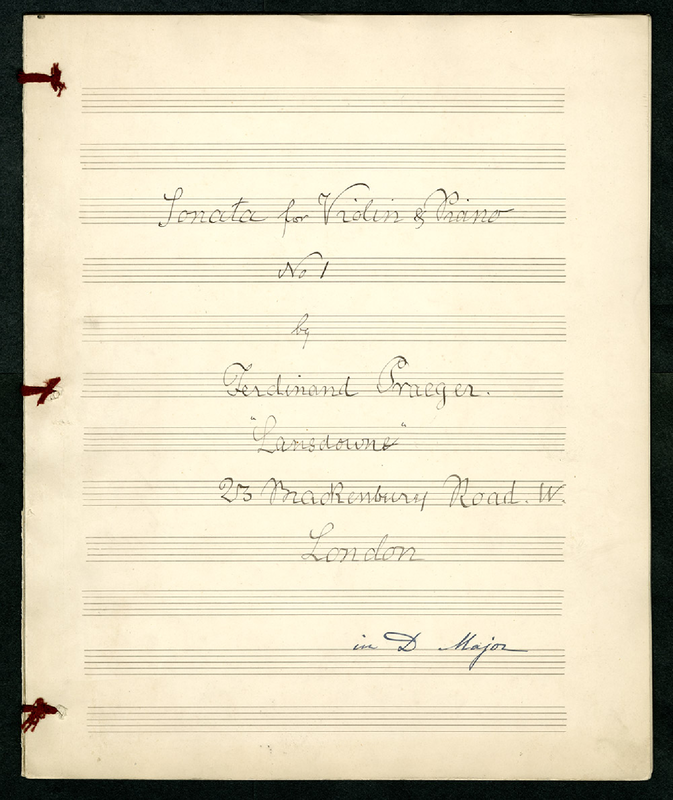 Sonata for Violin & Piano
No 1
by
Ferdinand Praeger.
"Lansdowne"
23 Brackenbury Road. W.
London
in D Major